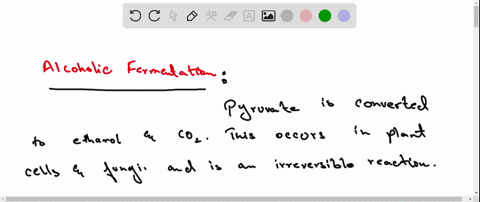 Alcoholic Fermentation:
Pyruvate is converted
to ethanol & CO2. This occurs in plant
cells & fungi. and is an irreversible reaction.